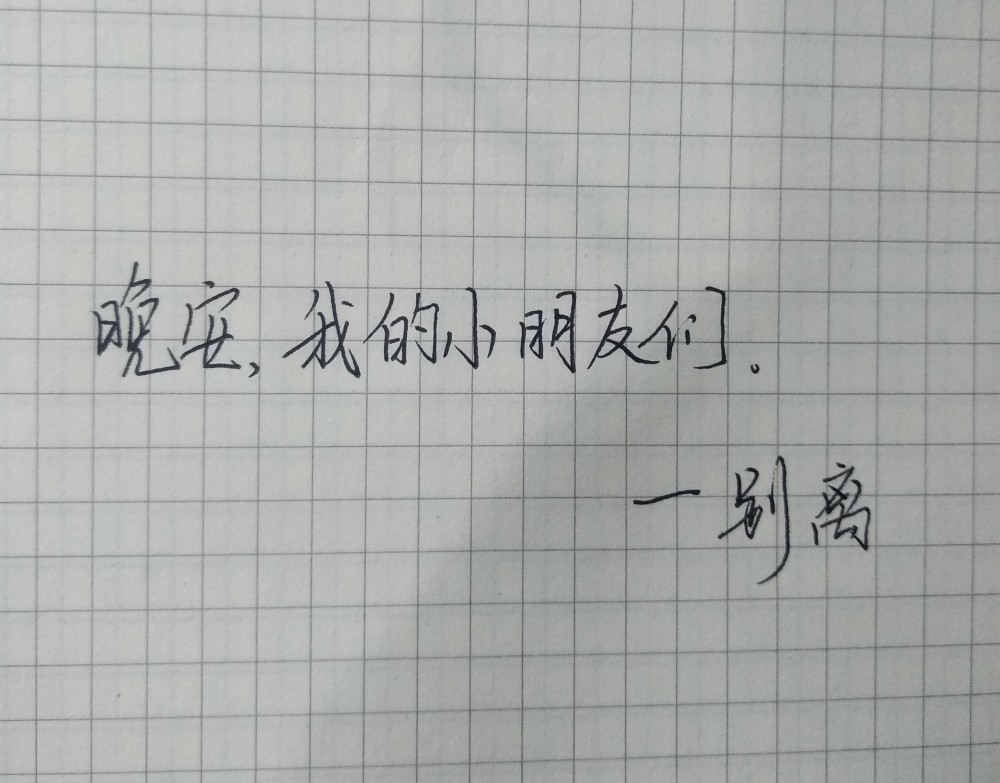 晚安,我的小朋友们。
一别离